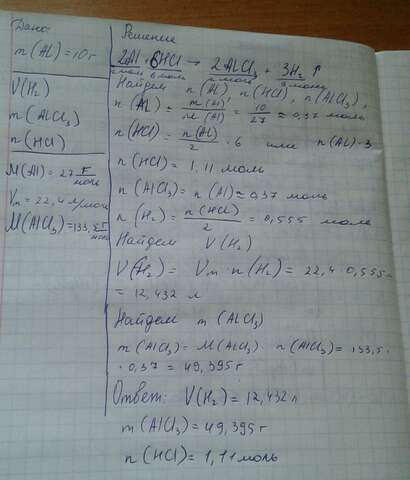 Дано:
m(Al)=10г
V(H₂)
m(AlCl₃)
n(HCl)
M(Al)=27 г/моль
Vₘ=22,4 л/моль
M(AlCl₃)=133,5 г/моль
Решение
2Al + 6HCl → 2AlCl₃ + 3H₂↑
2моль 6моль 2моль 3моль
Найдем n(Al), n(HCl), n(AlCl₃),
n(Al) = m(Al)/M(Al) = 10/27 ≈ 0,37 моль
n(HCl) = n(Al)/2 · 6 или n(Al)·3
n(HCl) = 1,11 моль
n(AlCl₃) = n(Al) ≈ 0,37 моль
n(H₂) = n(HCl)/2 = 0,555 моль
Найдем V(H₂)
V(H₂) = Vₘ · n(H₂) = 22,4 · 0,555 =
= 12,432 л
Найдем m(AlCl₃)
m(AlCl₃) = M(AlCl₃) · n(AlCl₃) = 133,5 ·
· 0,37 = 49,395 г
Ответ: V(H₂) = 12,432 л
m(AlCl₃) = 49,395 г
n(HCl) = 1,11 моль